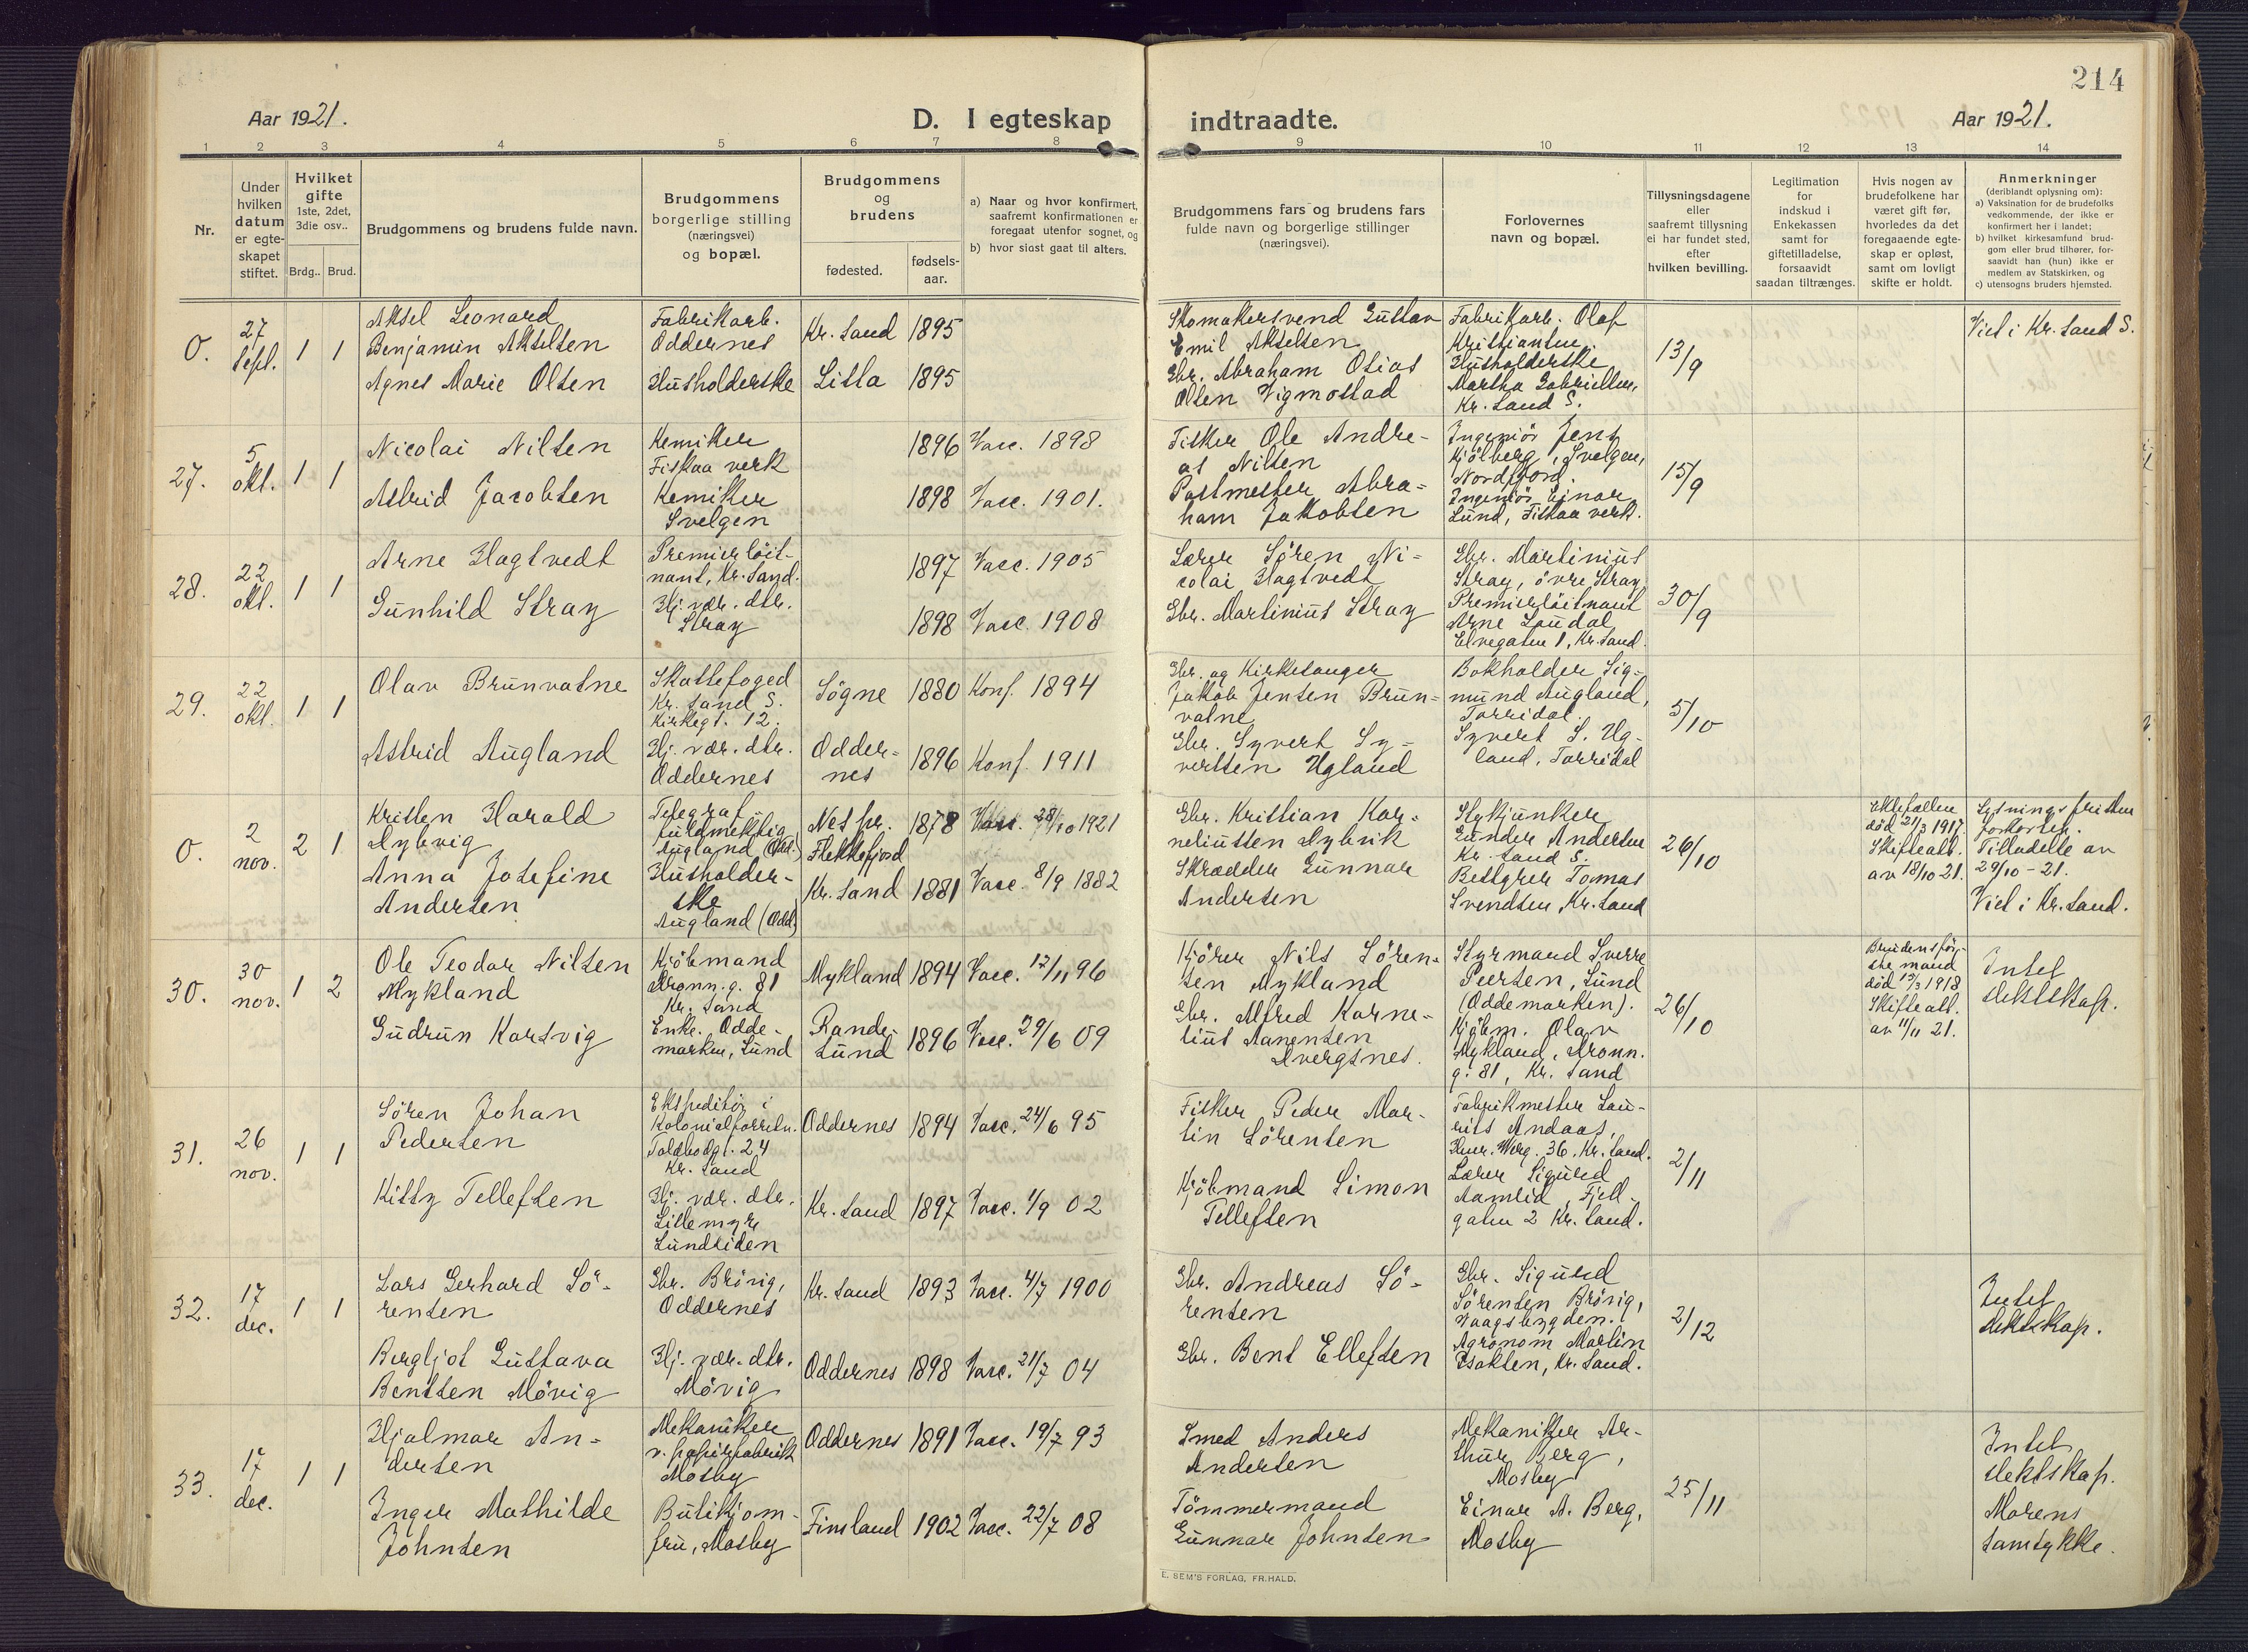 214
Aar 1921.
D. I egteskap indtraadte.
Aar 1921.
1 2 3 4 5 6 7 8 9 10 11 12 13 14
Nr.
Under hvilken datum er egteskapet stiftet.
Hvilket gifte 1ste, 2det, 3die osv..
Brdg.. Brud.
Brudgommens og brudens fulde navn.
Brudgommens borgerlige stilling (næringsvei) og bopæl.
Brudgommens og brudens
fødested.
fødselsaar.
a) Naar og hvor konfirmert, saafremt konfirmationen er foregaat utenfor sognet, og
b) hvor sidst gaat til alters.
Brudgommens fars og brudens fars fulde navn og borgerlige stillinger (næringsvei).
Forlovernes navn og bopæl.
Tillysningsdagene eller saafremt tillysning ei har fundet sted, efter hvilken bevilling.
Legitimation for indskud i Enkekassen samt for giftetilladelse, forsaavidt saadan tiltrænges.
Hvis nogen av brudefolkene har været gift før, hvorledes da det foregaaende egteskap er opløst, samt om lovligt skifte er holdt.
Anmerkninger (deriblandt oplysning om):
a) Vaksination for de brudefolks vedkommende, der ikke er konfirmert her i landet;
b) hvilket kirkesamfund brudgom eller brud tilhører, forsaavidt han (hun) ikke er medlem av Statskirken, og
c) utensogns bruders hjemsted.
0.
27 Sept.
1 1
Aksel Leonard
Benjamin Akselsen
Agnes Marie Olsen
Fabrikarb.
Oddernes
Husholderske
Kr. sand 1895
Lista 1895
Skomakersvend Gustav
Emil Akselsen
Gbr. Abraham Osias
Olsen Vigmostad
Fabrikarb. Olaf
Kristiansen.
Husholderske
Martha Gabrielsen,
Kr. sand S.
13/9
Viet i Kr. sand S.
27.
5 okt.
1 1
Nicolai Nilsen
Astrid Jacobsen
Kemiker
Fiskaa verk
Kemiker
Svelgen
1896 Vacc. 1898
1898 Vacc. 1901.
Fisker Ole Andre-
as Nilsen
Postmester Abra-
ham Jakobsen
Ingeniör Jens
Kjölberg, Svelgen,
Nordfjord.
Ingeniör Einar
Lund, Fiskaa verk.
15/9
28.
22 okt.
1 1
Arne Hagtvedt
Gunhild Stray
Premierlöit-
nant, Kr. sand.
Hj. vær. dtr.
Stray
1897 Vacc. 1905
1898 Vacc. 1908
Lærer Sören Ni-
colai Hagtvedt
Gbr. Martinius Stray
Gbr. Martinius
Stray, övre Stray
Premierlöitnant
Arne Laudal
Elvegaten 1, Kr. sand.
30/9
29.
22 okt.
1 1
Olav Brunvatne
Astrid Augland
Skattefoged
Kr. sand S.
Kirkegt. 12.
Hj. vær. dtr.
Oddernes
Sögne 1880 Konf. 1894
Odder-
nes 1896 Konf. 1911
Gbr. og Kirkesanger
Jakob Jensen Brun-
vatne
Gbr. Syvert Sy-
vertsen Ugland
Bokholder Sig-
mund Augland,
Torridal.
Syvert S. Ug-
land, Torridal
5/10
0.
2 nov.
2 1
Kristen Harald
Dybvig
Anna Josefine
Andersen
Telegraf-
fuldmektig
Augland (Odd.)
Husholder-
ske
Augland (Odd)
Nes pr.
Flekkefjord 1878 Vacc. 28/10 1921
Kr. sand 1881 Vacc. 8/9 1882
Gbr. Kristian Kor-
neliussen Dybvik
Skrædder Gunnar
Andersen
Stykjunker
Gunder Andersen
Kr. sand S.
Bestyrer Tomas
Svendsen, Kr. sand
26/10
Ektefællen
död 21/3 1917.
Skifteatt.
av 18/10 21.
Lysningsfristen
forkortet.
Tilladelse av
29/10 - 21.
Viet i Kr. sand.
30.
30 nov.
1 2
Ole Teodor Nilsen
Mykland
Gudrun Korsvig
Kjöbmand
Dronn. g. 81
Kr. sand
Enke. Odde-
marken, Lund
Mykland 1894 Vacc. 12/11 96
Rande-
sund 1896 Vacc. 29/6 09
Kjörer Nils Sören-
sen Mykland
Gbr. Alfred Korne-
lius Aanensen
Dvergsnes.
Styrmand Sverre
Peersen, Lund
(Oddemarken).
Kjöbm. Olav
Mykland, Dronn.
g. 81, Kr. sand
26/10
Brudens för-
ste mand
död 13/3 1918
Skifteatt.
av 11/11 21.
Intet
slektskap.
31.
26 nov.
1 1
Sören Johan
Pedersen
Kitty Tellefsen
Ekspeditör i
Kolonialforretn.
Toldbodgt. 24
Kr. sand
Hj. vær. dtr.
Lillemyr
Lundsiden
Oddernes 1894 Vacc. 24/6 95
Kr. sand 1897 Vacc. 1/9 02
Fisker Peder Mar-
tin Sörensen
Kjöbmand Simon
Tellefsen
Fabrikmester Lau-
rits Andaas,
36. Kr. sand.
Lærer Sigurd
Aamlid, Fjell-
gaten 2 Kr. sand.
2/11
32.
17 dec.
1 1
Lars Gerhard Sö-
rensen
Bergljot Gustava
Bentsen Mövig
Gbr. Brövig,
Oddernes
Hj. vær. dtr.
Mövig
Kr. sand 1893 Vacc. 4/7 1900
Oddernes 1898 Vacc. 21/7 04
Gbr. Andreas Sö-
rensen
Gbr. Bent Ellefsen
Gbr. Sigurd
Sörensen Brövig,
Vaagsbygden.
Agronom Martin
Isaksen, Kr. sand.
2/12
Intet
slektskap.
33.
17 dec.
1 1
Hjalmar An-
dersen
Inger Mathilde
Johnsen
Mekaniker
v. papirfabrik
Mosby
Butikjom-
fru, Mosby
Oddernes 1891 Vacc. 19/7 93
Finsland 1902 Vacc. 22/7 08
Smed Anders
Andersen
Tömmermand
Gunnar Johnsen
Mekaniker Ar-
thur Berg,
Mosby
Einar A. Berg,
Mosby
25/11
Intet
slektskap.
Morens
samtykke.
E. SEM'S FORLAG, FR.HALD.